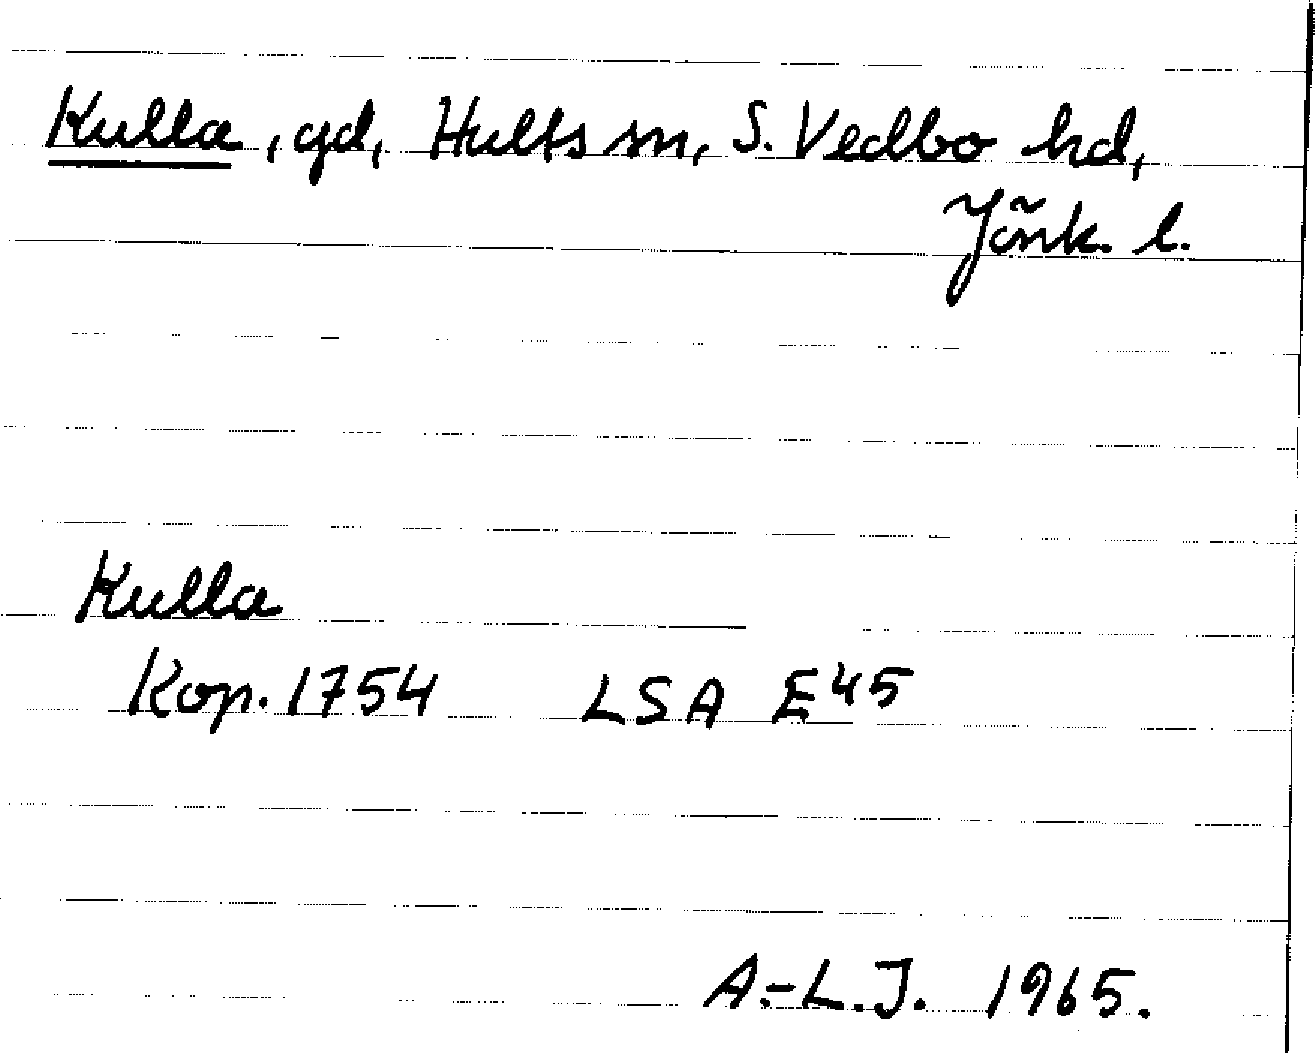 Kulla, gd, Hults sn, S. Vedbo hd,
Jönk. l.
Kulla
Kop. 1754 LSA E45
A.-L.J. 1965.